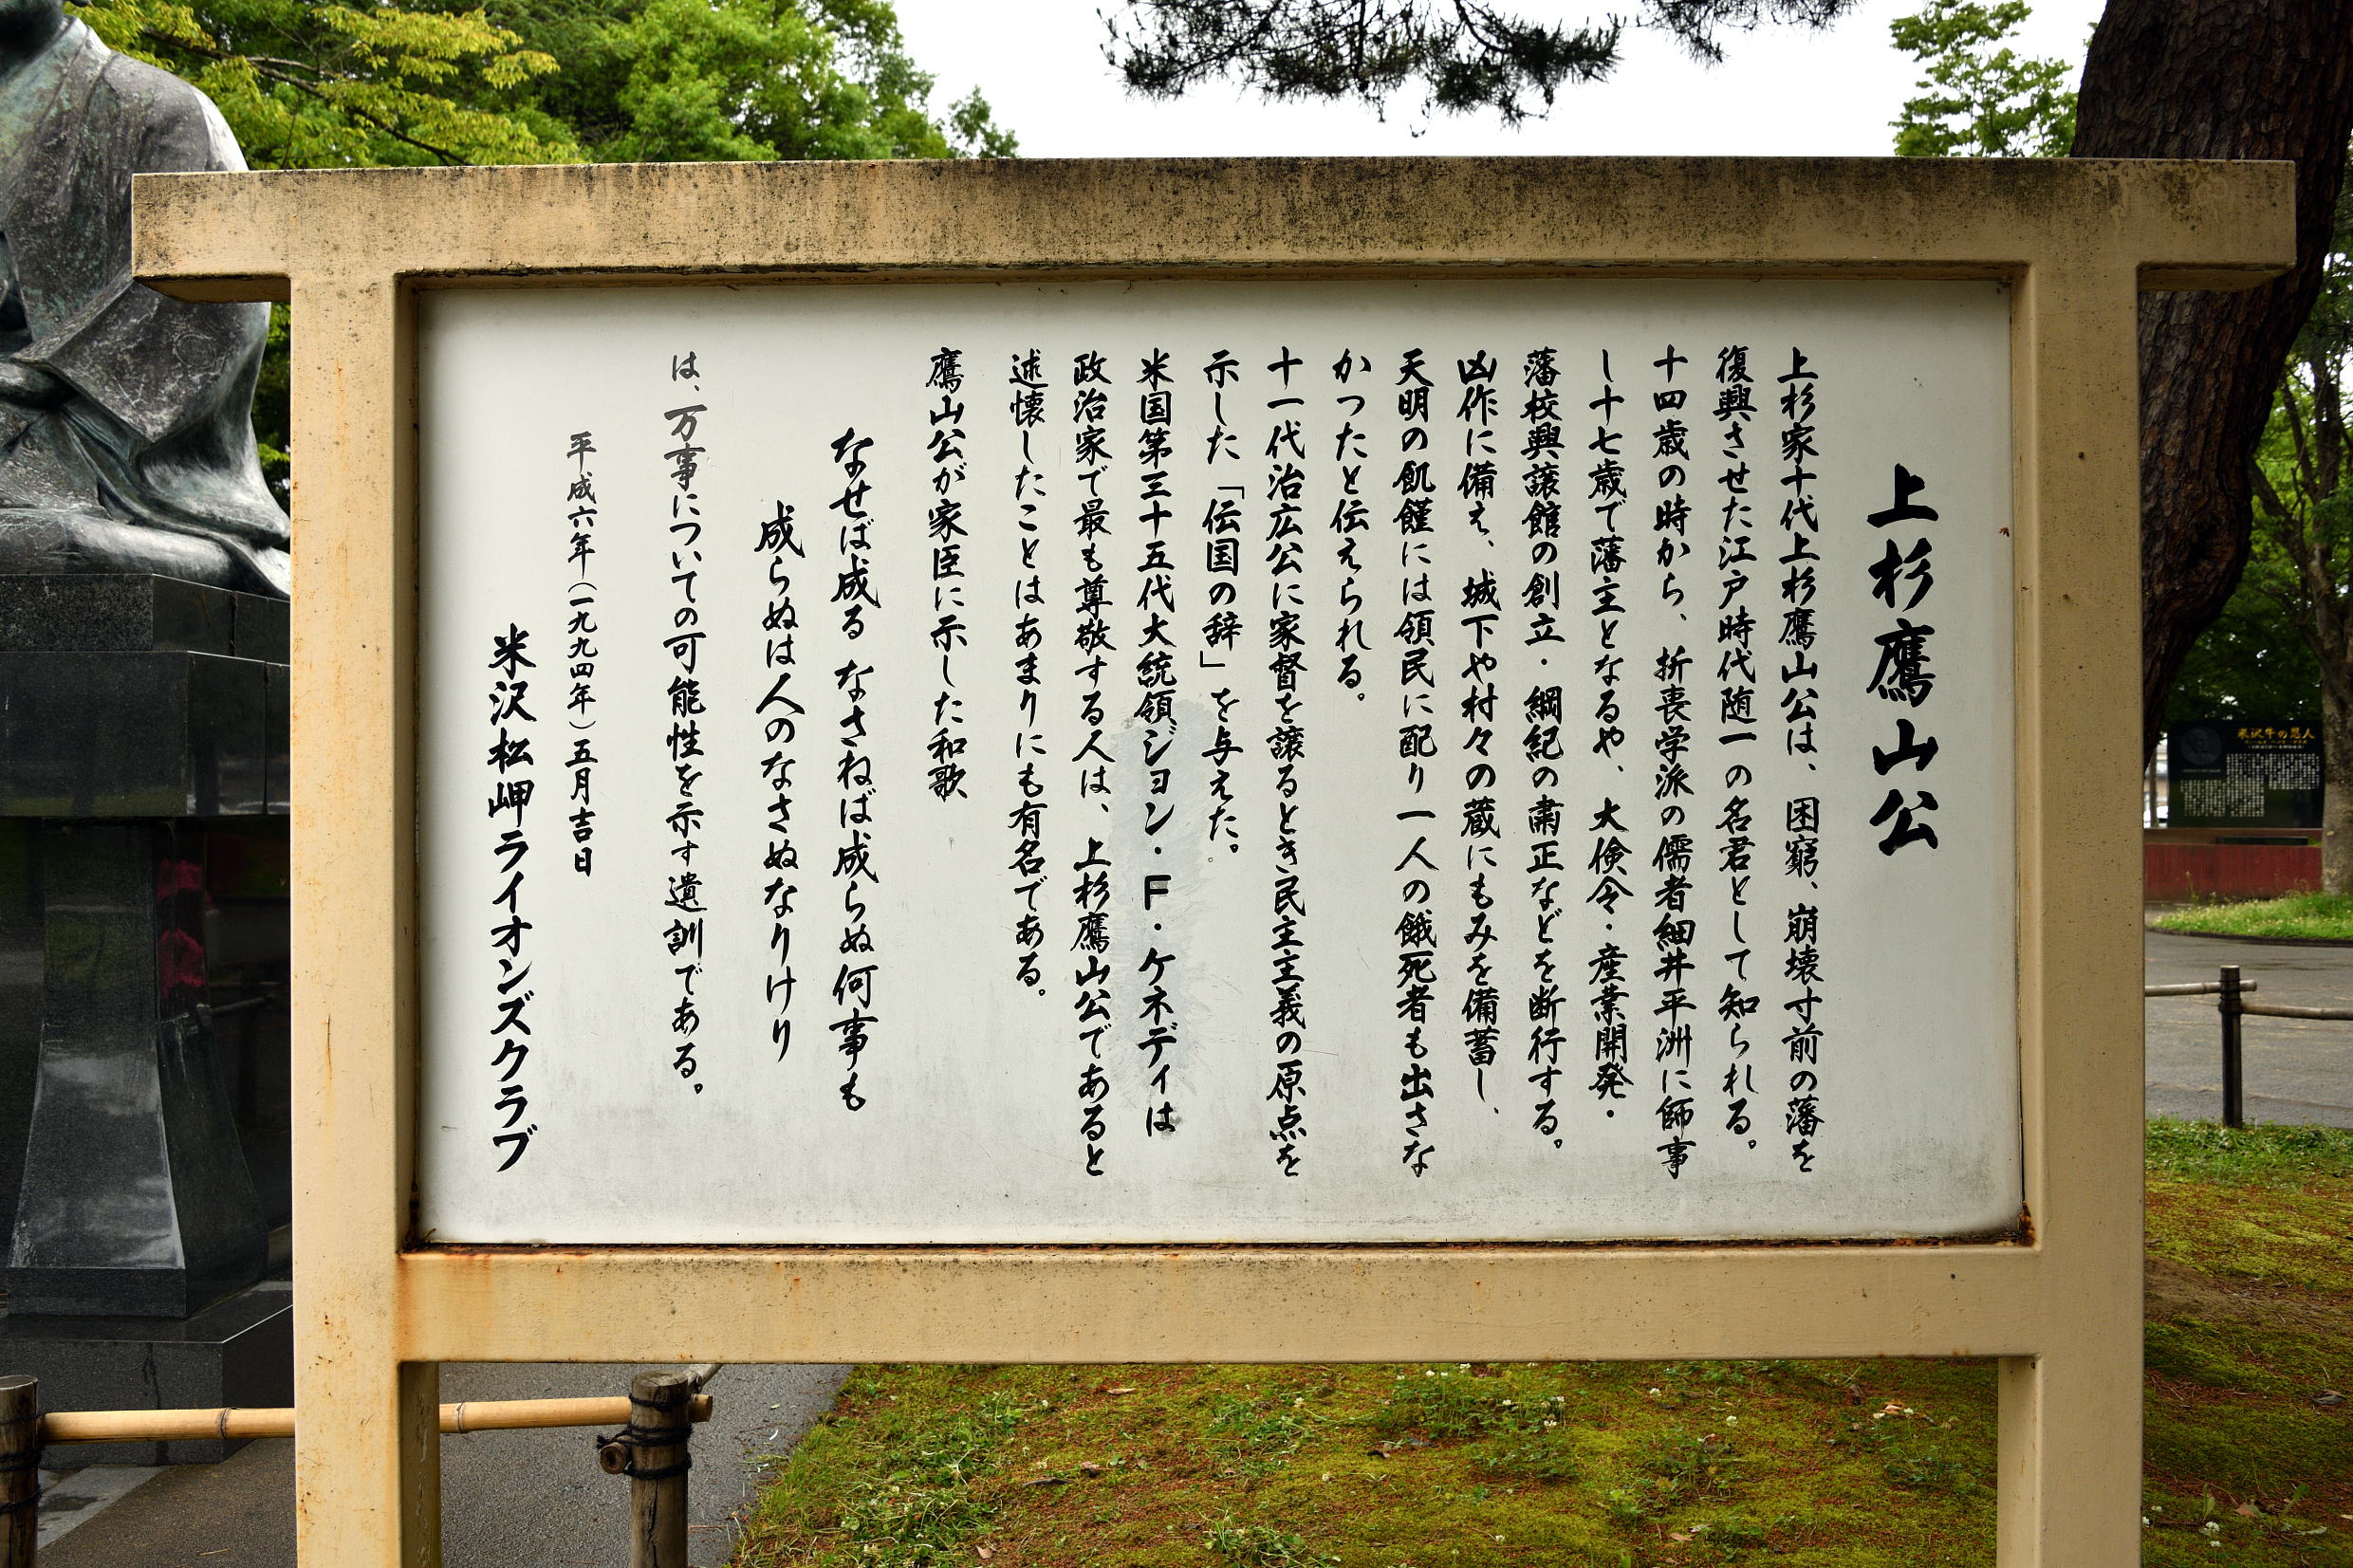 上杉鷹山公
上杉家十代上杉鷹山公は、困窮、崩壊寸前の藩を
復興させた江戸時代随一の名君として知られる。
十四歳の時から、折衷学派の儒者細井平洲に師事
し十七歳で藩主となるや、大倹令・産業開発・
藩校興譲館の創立・綱紀の粛正などを断行する。
凶作に備え、城下や村々の蔵にもみを備蓄し、
天明の飢饉には領民に配り一人の餓死者も出さな
かつたと伝えられる。
十一代治広公に家督を譲るとき民主主義の原点を
示した「伝国の辞」を与えた。
米国第三十五代大統領ジョン・F・ケネディは
政治家で最も尊敬する人は、上杉鷹山公であると
述懐したことはあまりにも有名である。
鷹山公が家臣に示した和歌
なせば成る なさねば成らぬ何事も
成らぬは人のなさぬなりけり
は、万事についての可能性を示す遺訓である。
平成六年(一九九四年)五月吉日
米沢松岬ライオンズクラブ
米沢牛の恩人